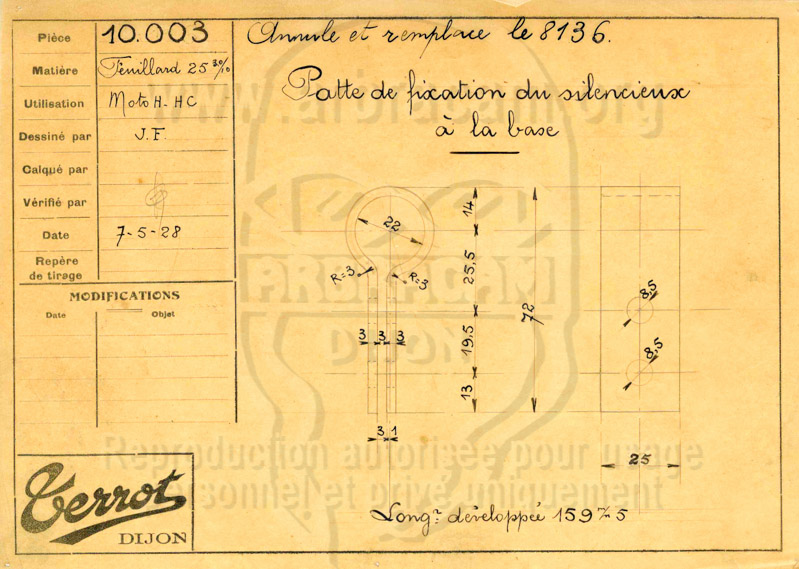 Pièce 10.003
Matière Feuillard 25 30/10
Utilisation Moto H-HC
Dessiné par J.F.
Calqué par
Vérifié par
Date 7-5-28
Repère
de tirage
MODIFICATIONS
Date Objet
Annule et remplace le 8136.
Patte de fixation du silencieux
à la base
22
R=3 R=3
3 3 3
3 1
14
25,5
19,5
13
72
8,5
8,5
25
Longr développée 159
Terrot
DIJON
www.
.org
ARBRACAM
DIJON
Reproduction autorisée pour usage
sonnel et privé uniquement